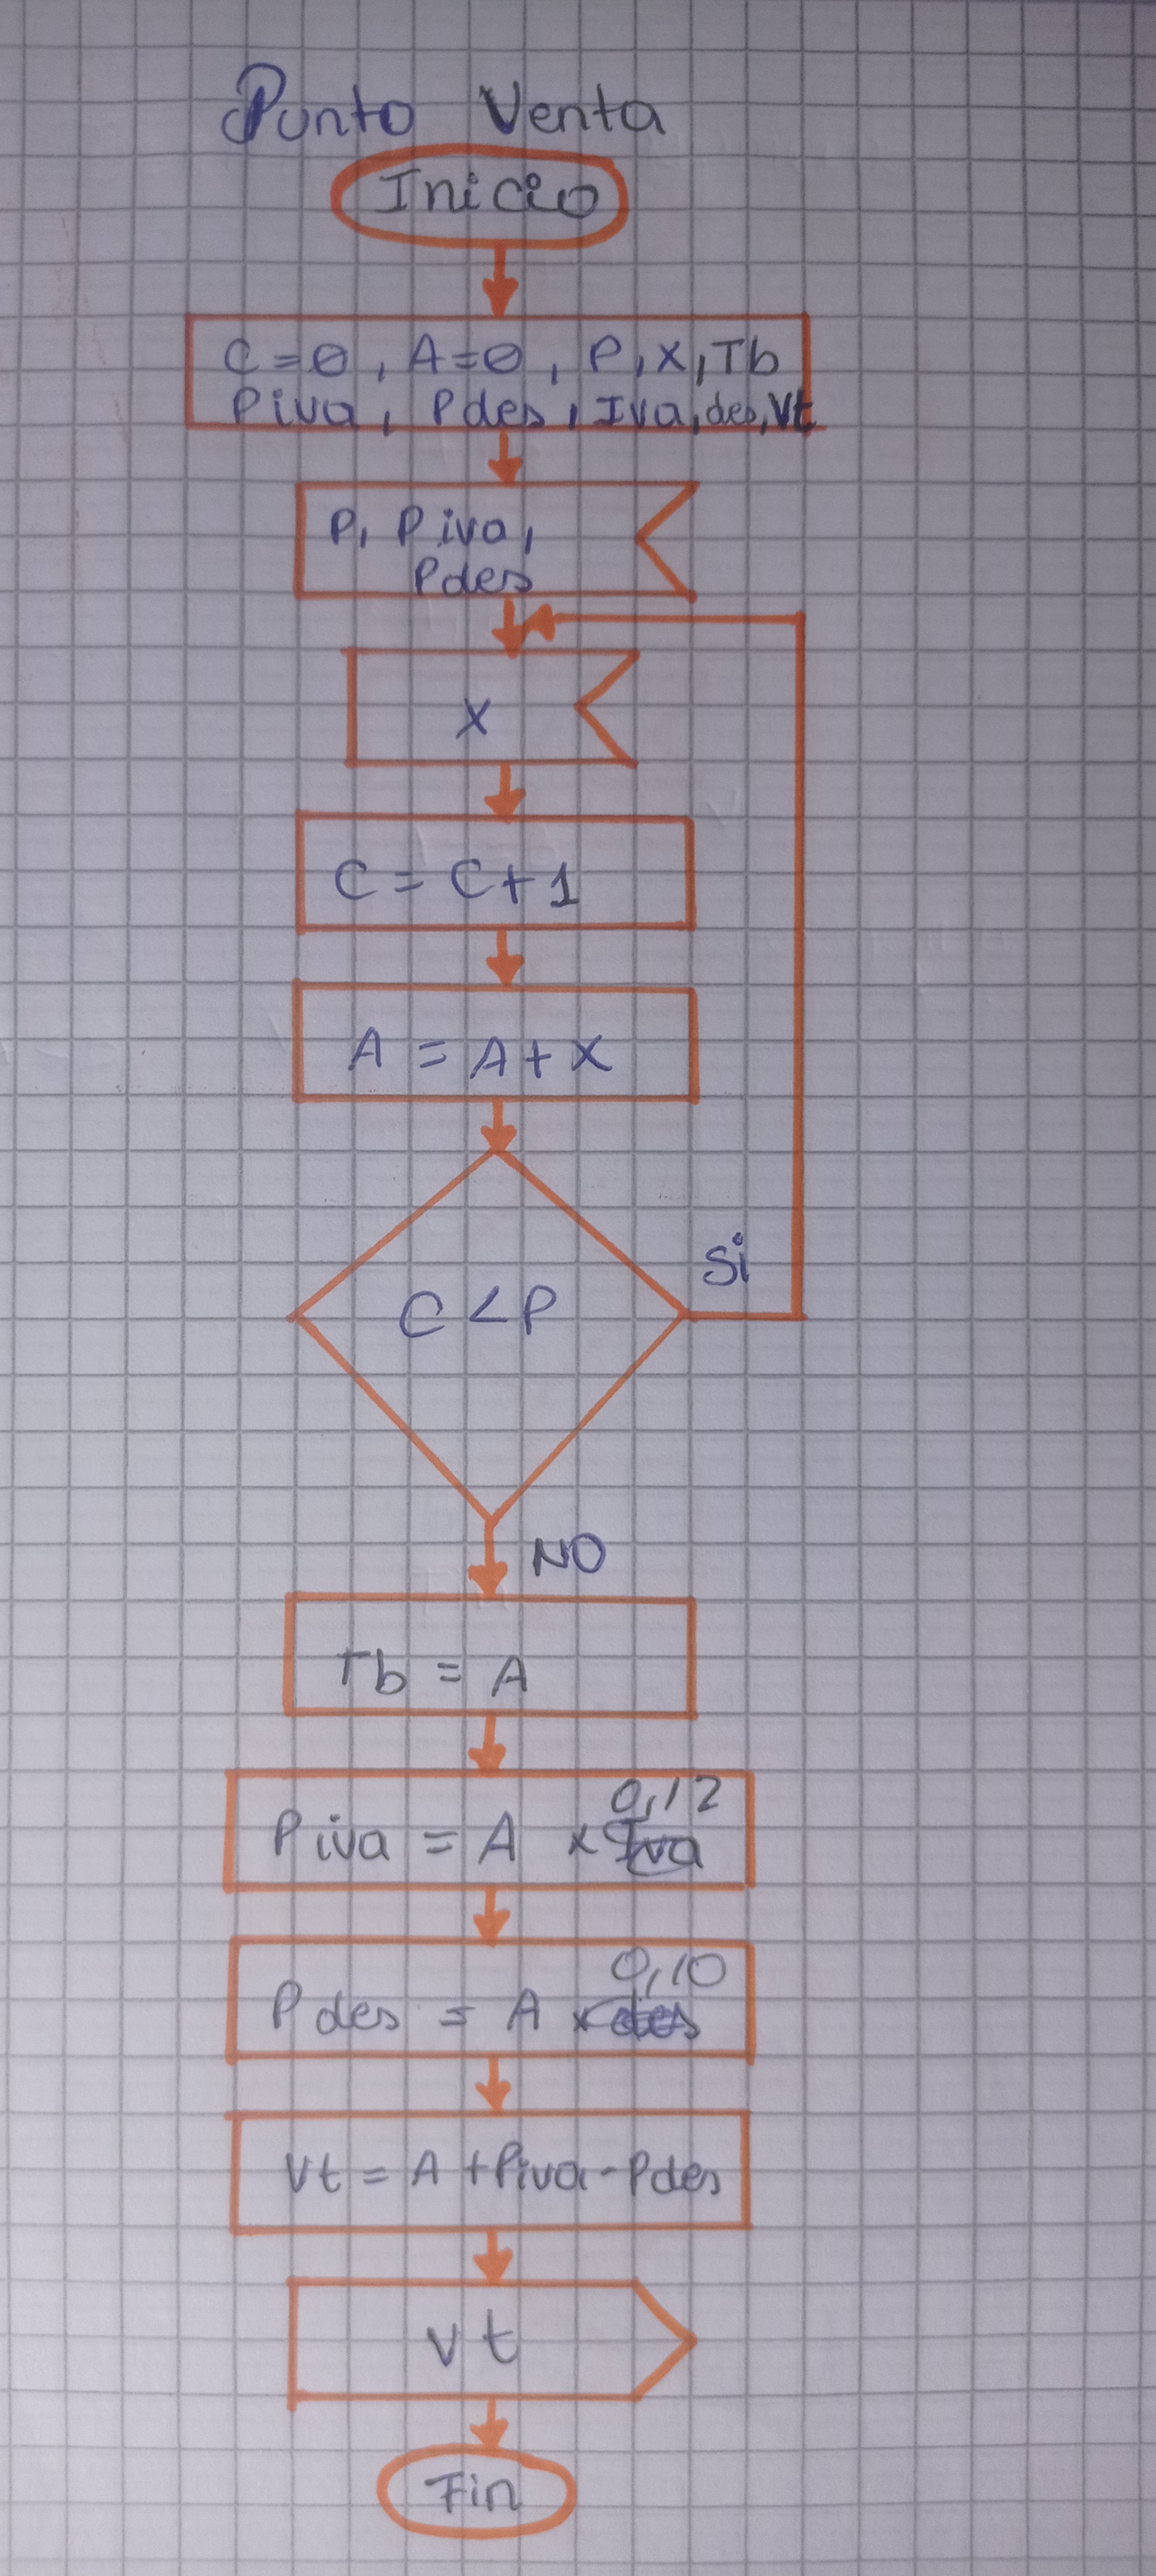 Punto Venta
Inicio
C=0, A=0, P, X, Tb
Piva, Pdes, Iva, des, Vt
P, Piva,
Pdes
X
C = C+1
A = A+X
C<P
Si
NO
Tb = A
0,12
Piva = A x Iva
0,10
Pdes = A x des
Vt = A+Piva-Pdes
Vt
Fin